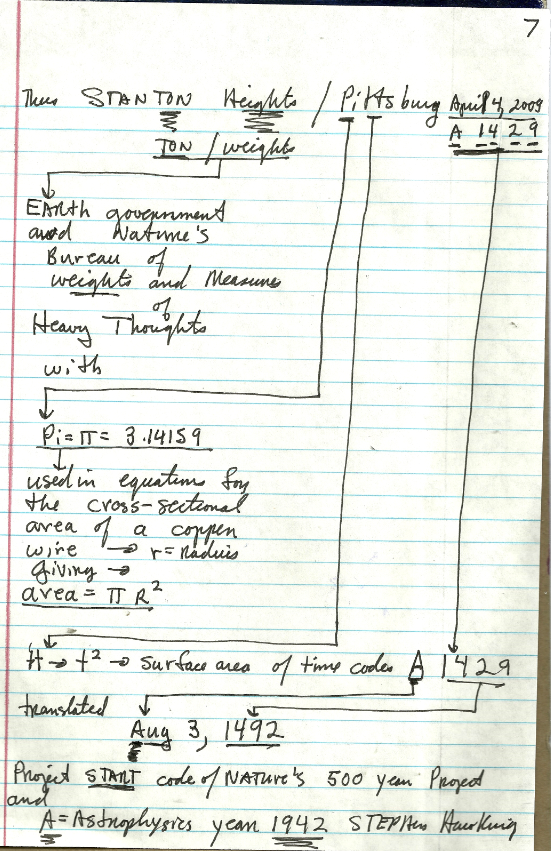 7
Thus STANTON Heights / Pittsburg April 4, 2009
A 14 29
TON / weights
EARth government
and Nature's
Bureau of
weights and Measures
of
Heavy Thoughts
with
Pi = π = 3.14159
used in equations for
the cross-sectional
area of a copper
wire → r = Radius
giving →
area = π R²
tt → t² → surface area of time codes A 1429
translated
Aug 3, 1492
Project START code of NATURE's 500 year Project
and
A = Astrophysics year 1942 STEPHEN Hawking